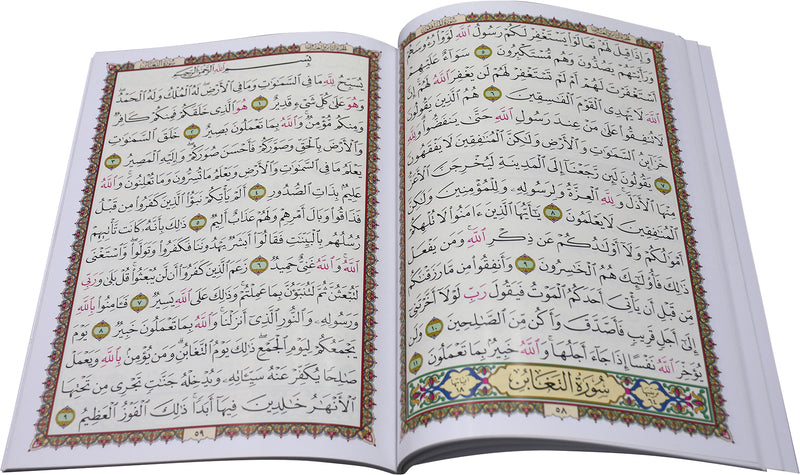 وَإِذَا قِيلَ لَهُمْ تَعَالَوْا۟ يَسْتَغْفِرْ لَكُمْ رَسُولُ ٱللَّهِ لَوَّوْا۟ رُءُوسَهُمْ
وَرَأَيْتَهُمْ يَصُدُّونَ وَهُم مُّسْتَكْبِرُونَ ٥ سَوَآءٌ عَلَيْهِمْ
أَسْتَغْفَرْتَ لَهُمْ أَمْ لَمْ تَسْتَغْفِرْ لَهُمْ لَن يَغْفِرَ ٱللَّهُ لَهُمْ إِنَّ
ٱللَّهَ لَا يَهْدِى ٱلْقَوْمَ ٱلْفَـٰسِقِينَ ٦ هُمُ ٱلَّذِينَ يَقُولُونَ
لَا تُنفِقُوا۟ عَلَىٰ مَنْ عِندَ رَسُولِ ٱللَّهِ حَتَّىٰ يَنفَضُّوا۟ وَلِلَّهِ
خَزَآئِنُ ٱلسَّمَـٰوَٰتِ وَٱلْأَرْضِ وَلَـٰكِنَّ ٱلْمُنَـٰفِقِينَ لَا يَفْقَهُونَ
٧ يَقُولُونَ لَئِن رَّجَعْنَآ إِلَى ٱلْمَدِينَةِ لَيُخْرِجَنَّ ٱلْأَعَزُّ
مِنْهَا ٱلْأَذَلَّ وَلِلَّهِ ٱلْعِزَّةُ وَلِرَسُولِهِۦ وَلِلْمُؤْمِنِينَ وَلَـٰكِنَّ
ٱلْمُنَـٰفِقِينَ لَا يَعْلَمُونَ ٨ يَـٰٓأَيُّهَا ٱلَّذِينَ ءَامَنُوا۟ لَا تُلْهِكُمْ
أَمْوَٰلُكُمْ وَلَآ أَوْلَـٰدُكُمْ عَن ذِكْرِ ٱللَّهِ وَمَن يَفْعَلْ
ذَٰلِكَ فَأُو۟لَـٰٓئِكَ هُمُ ٱلْخَـٰسِرُونَ ٩ وَأَنفِقُوا۟ مِن مَّا رَزَقْنَـٰكُم
مِّن قَبْلِ أَن يَأْتِىَ أَحَدَكُمُ ٱلْمَوْتُ فَيَقُولَ رَبِّ لَوْلَآ أَخَّرْتَنِىٓ
إِلَىٰٓ أَجَلٍ قَرِيبٍ فَأَصَّدَّقَ وَأَكُن مِّنَ ٱلصَّـٰلِحِينَ ١٠ وَلَن
يُؤَخِّرَ ٱللَّهُ نَفْسًا إِذَا جَآءَ أَجَلُهَا وَٱللَّهُ خَبِيرٌۢ بِمَا تَعْمَلُونَ ١١
سُورَةُ التَّغَابُنِ
٥٨
بِسْمِ ٱللَّهِ ٱلرَّحْمَـٰنِ ٱلرَّحِيمِ
يُسَبِّحُ لِلَّهِ مَا فِى ٱلسَّمَـٰوَٰتِ وَمَا فِى ٱلْأَرْضِ لَهُ ٱلْمُلْكُ وَلَهُ ٱلْحَمْدُ
وَهُوَ عَلَىٰ كُلِّ شَىْءٍ قَدِيرٌ ١ هُوَ ٱلَّذِى خَلَقَكُمْ فَمِنكُمْ كَافِرٌ
وَمِنكُم مُّؤْمِنٌ وَٱللَّهُ بِمَا تَعْمَلُونَ بَصِيرٌ ٢ خَلَقَ ٱلسَّمَـٰوَٰتِ
وَٱلْأَرْضَ بِٱلْحَقِّ وَصَوَّرَكُمْ فَأَحْسَنَ صُوَرَكُمْ وَإِلَيْهِ ٱلْمَصِيرُ ٣
يَعْلَمُ مَا فِى ٱلسَّمَـٰوَٰتِ وَٱلْأَرْضِ وَيَعْلَمُ مَا تُسِرُّونَ وَمَا تُعْلِنُونَ وَٱللَّهُ
عَلِيمٌۢ بِذَاتِ ٱلصُّدُورِ ٤ أَلَمْ يَأْتِكُمْ نَبَؤُا۟ ٱلَّذِينَ كَفَرُوا۟ مِن قَبْلُ
فَذَاقُوا۟ وَبَالَ أَمْرِهِمْ وَلَهُمْ عَذَابٌ أَلِيمٌ ٥ ذَٰلِكَ بِأَنَّهُۥ كَانَت تَّأْتِيهِمْ
رُسُلُهُم بِٱلْبَيِّنَـٰتِ فَقَالُوٓا۟ أَبَشَرٌ يَهْدُونَنَا فَكَفَرُوا۟ وَتَوَلَّوا۟ وَّٱسْتَغْنَى
ٱللَّهُ وَٱللَّهُ غَنِىٌّ حَمِيدٌ ٦ زَعَمَ ٱلَّذِينَ كَفَرُوٓا۟ أَن لَّن يُبْعَثُوا۟ قُلْ بَلَىٰ وَرَبِّى
لَتُبْعَثُنَّ ثُمَّ لَتُنَبَّؤُنَّ بِمَا عَمِلْتُمْ وَذَٰلِكَ عَلَى ٱللَّهِ يَسِيرٌ ٧ فَـَٔامِنُوا۟ بِٱللَّهِ
وَرَسُولِهِۦ وَٱلنُّورِ ٱلَّذِىٓ أَنزَلْنَا وَٱللَّهُ بِمَا تَعْمَلُونَ خَبِيرٌ ٨ يَوْمَ
يَجْمَعُكُمْ لِيَوْمِ ٱلْجَمْعِ ذَٰلِكَ يَوْمُ ٱلتَّغَابُنِ وَمَن يُؤْمِنۢ بِٱللَّهِ وَيَعْمَلْ
صَـٰلِحًا يُكَفِّرْ عَنْهُ سَيِّـَٔاتِهِۦ وَيُدْخِلْهُ جَنَّـٰتٍ تَجْرِى مِن تَحْتِهَا
ٱلْأَنْهَـٰرُ خَـٰلِدِينَ فِيهَآ أَبَدًا ذَٰلِكَ ٱلْفَوْزُ ٱلْعَظِيمُ ٩
٥٩